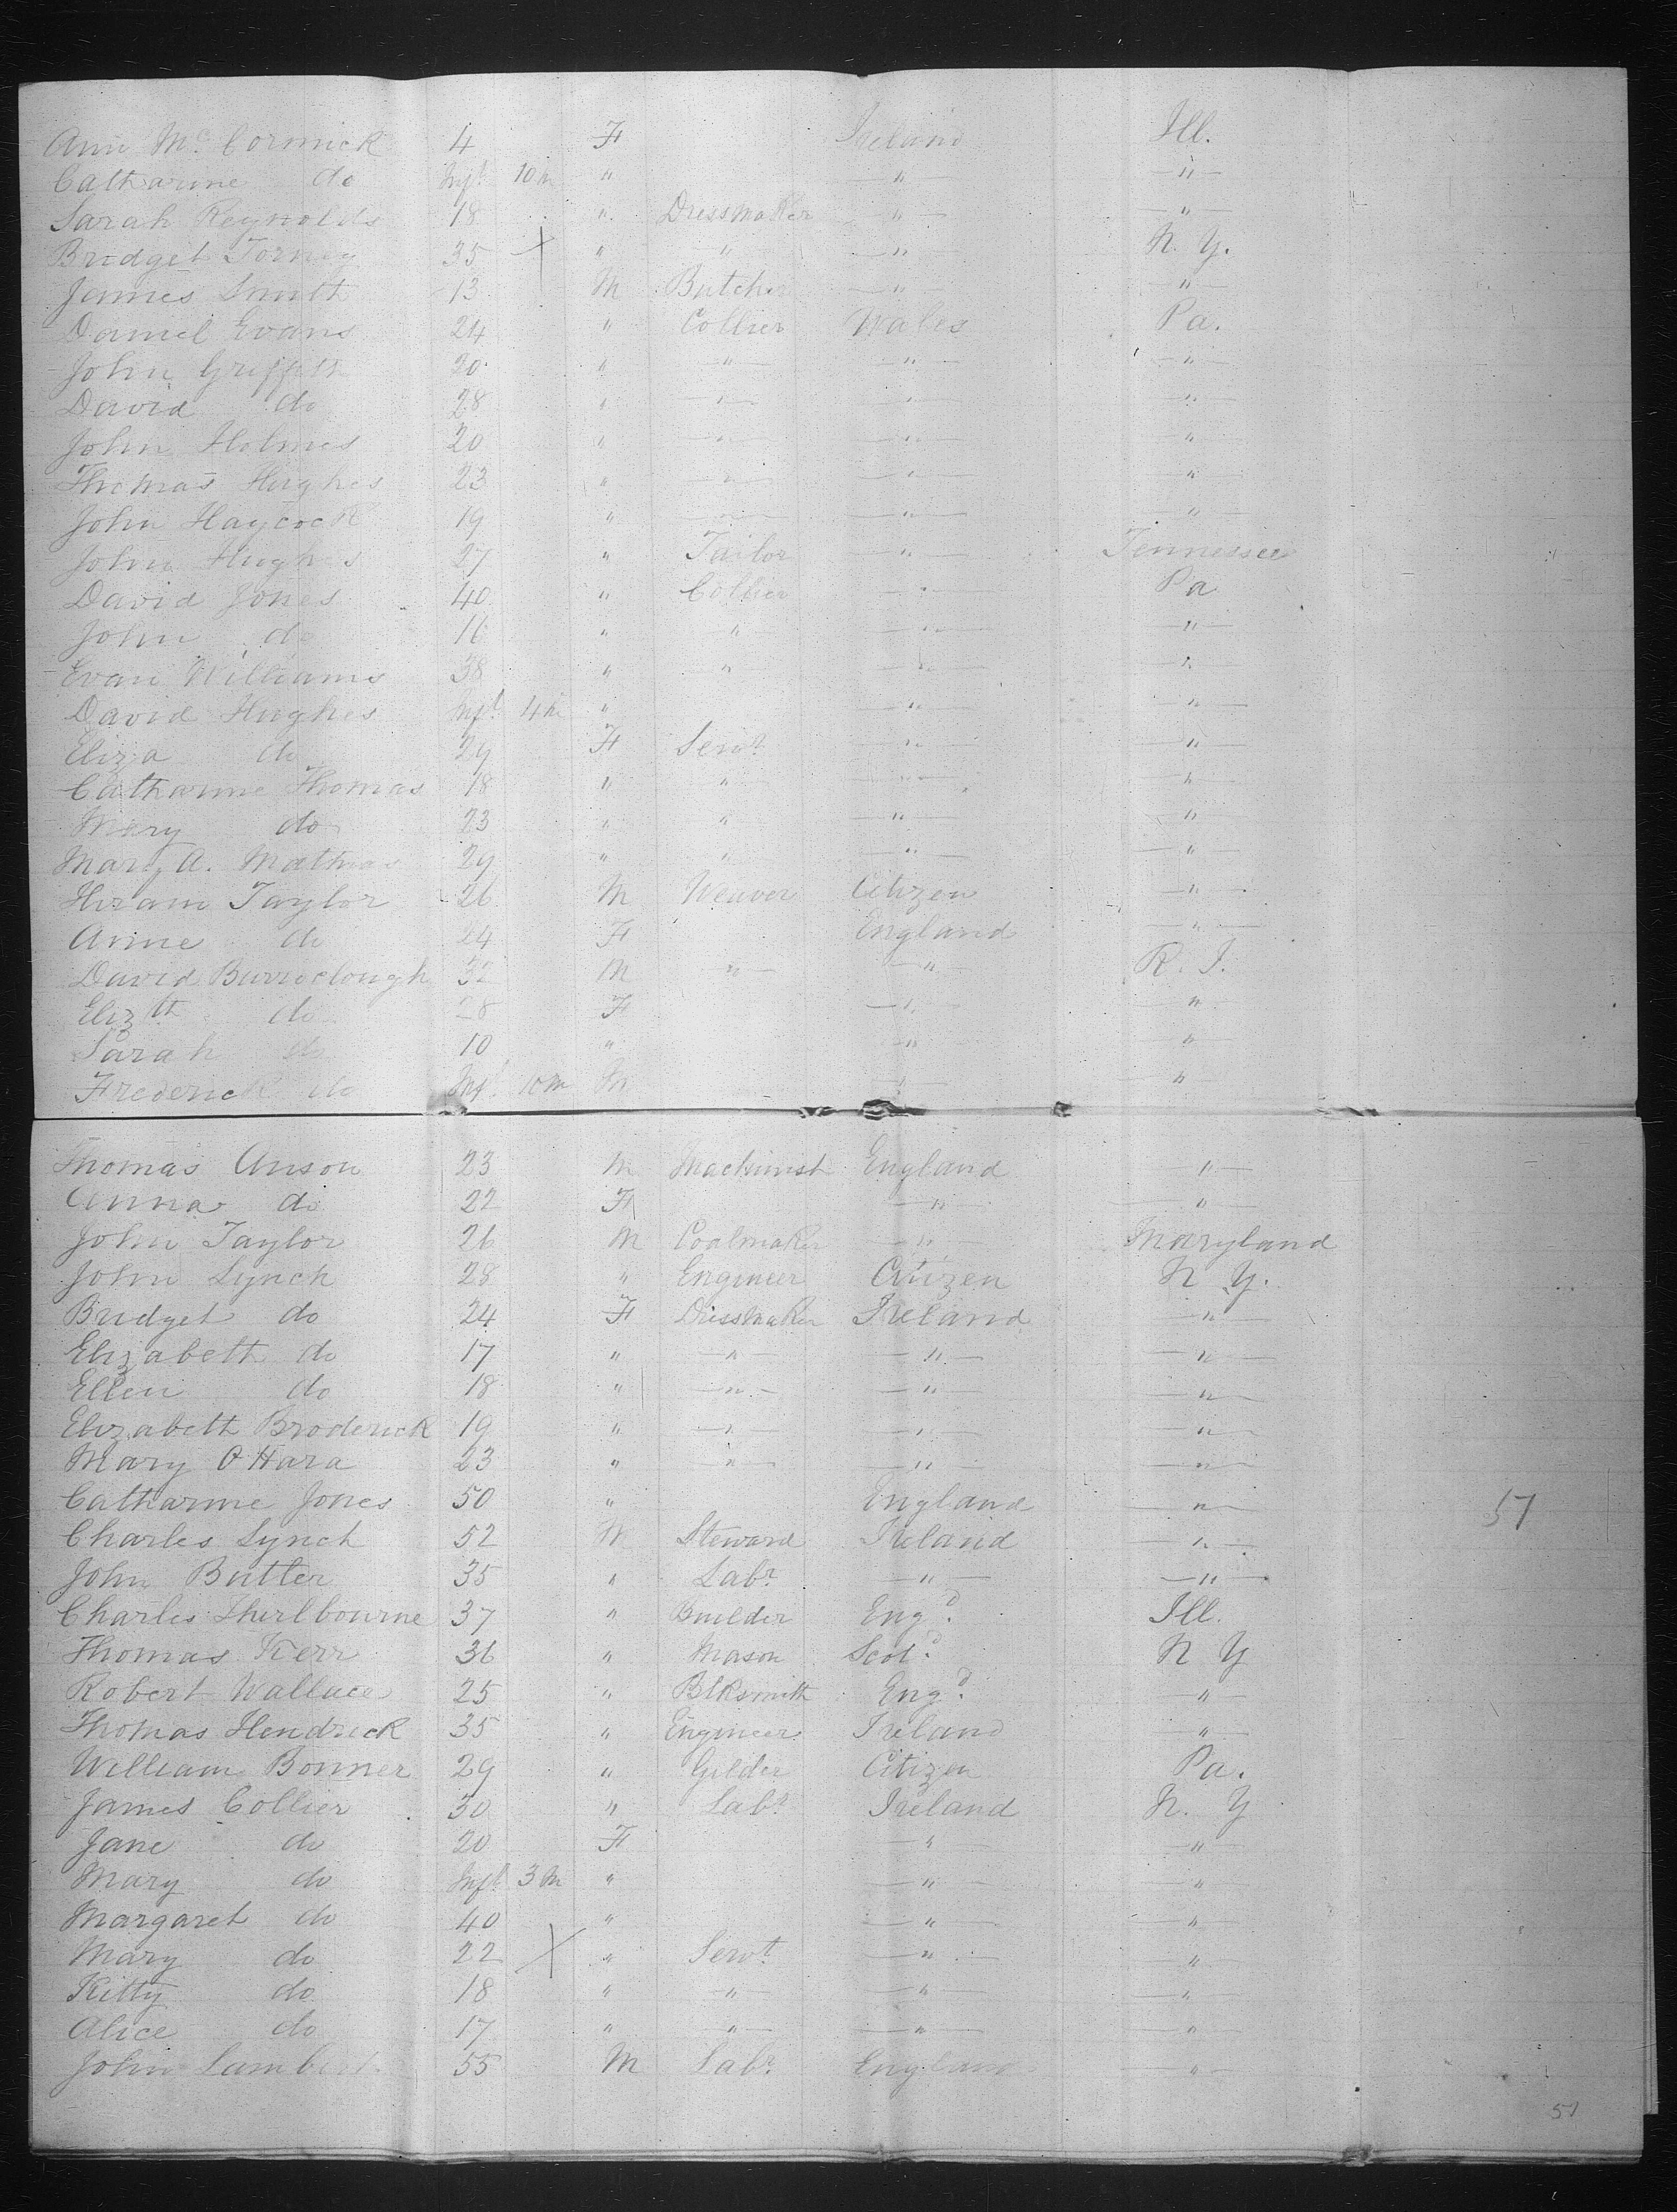 Ann Mc Cormick 4 F Ireland Ill.
Catharine do Inft 10 m " " "
Sarah Reynolds 18 " Dressmaker " "
Bridget Torney 35 X " " " N. Y.
James Smith 13 M Butcher " "
Daniel Evans 24 " Collier Wales Pa.
John Griffith 20 " " " "
David do 28 " " " "
John Holmes 20 " " " "
Thomas Hughes 23 " " " "
John Haycock 19 " " " "
John Hughes 27 " Tailor " Tennessee
David Jones 40 " Collier " Pa
John do 16 " " " "
Evan Williams 38 " " " "
David Hughes Inft 4 m " " "
Eliza do 29 F Servt " "
Catharine Thomas 18 " " " "
Mary do 23 " " " "
Mary A. Mathias 29 " " " "
Hiram Taylor 26 M Weaver Citizen "
Anne do 24 F England "
David Burroclough 32 M " " R. I.
Elizth do 28 F " "
Sarah do 10 " " "
Frederick do Inft 10 m M " "
Thomas Anson 23 M Machinist England "
Anna do 22 F " "
John Taylor 26 M Coalmaker " Maryland
John Lynch 28 " Engineer Citizen N Y.
Bridget do 24 F Dressmaker Ireland "
Elizabeth do 17 " " " "
Ellen do 18 " " " "
Elizabeth Broderick 19 " " " "
Mary O'Hara 23 " " " "
Catharine Jones 50 " England " 57
Charles Lynch 52 M Steward Ireland "
John Butler 35 " Labr " "
Charles Shurlbourne 37 " Builder Engd. Ill.
Thomas Kerr 36 " Mason Scotd. N Y
Robert Wallace 25 " Blksmith Engd. "
Thomas Hendrick 35 " Engineer Ireland "
William Bonner 29 " Gilder Citizen Pa.
James Collier 30 " Labr Ireland N. Y
Jane do 20 F " "
Mary do Inft 3 m " " "
Margaret do 40 " " "
Mary do 22 X " Servt " "
Kitty do 18 " " " "
Alice do 17 " " " "
John Lambert 55 M Labr England "
57